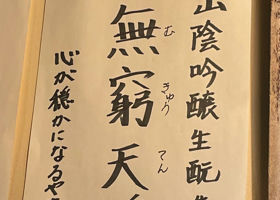 山陰吟醸生酛
む きゅう てん
無窮天
心が穏かになるや